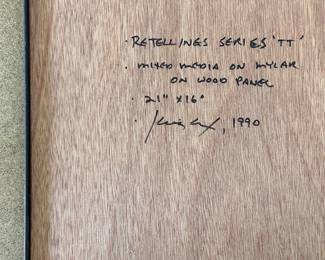 · RETELLINGS SERIES 'TT'
· MIXED MEDIA ON MYLAR
ON WOOD PANEL
· 21" X 16"
· , 1990